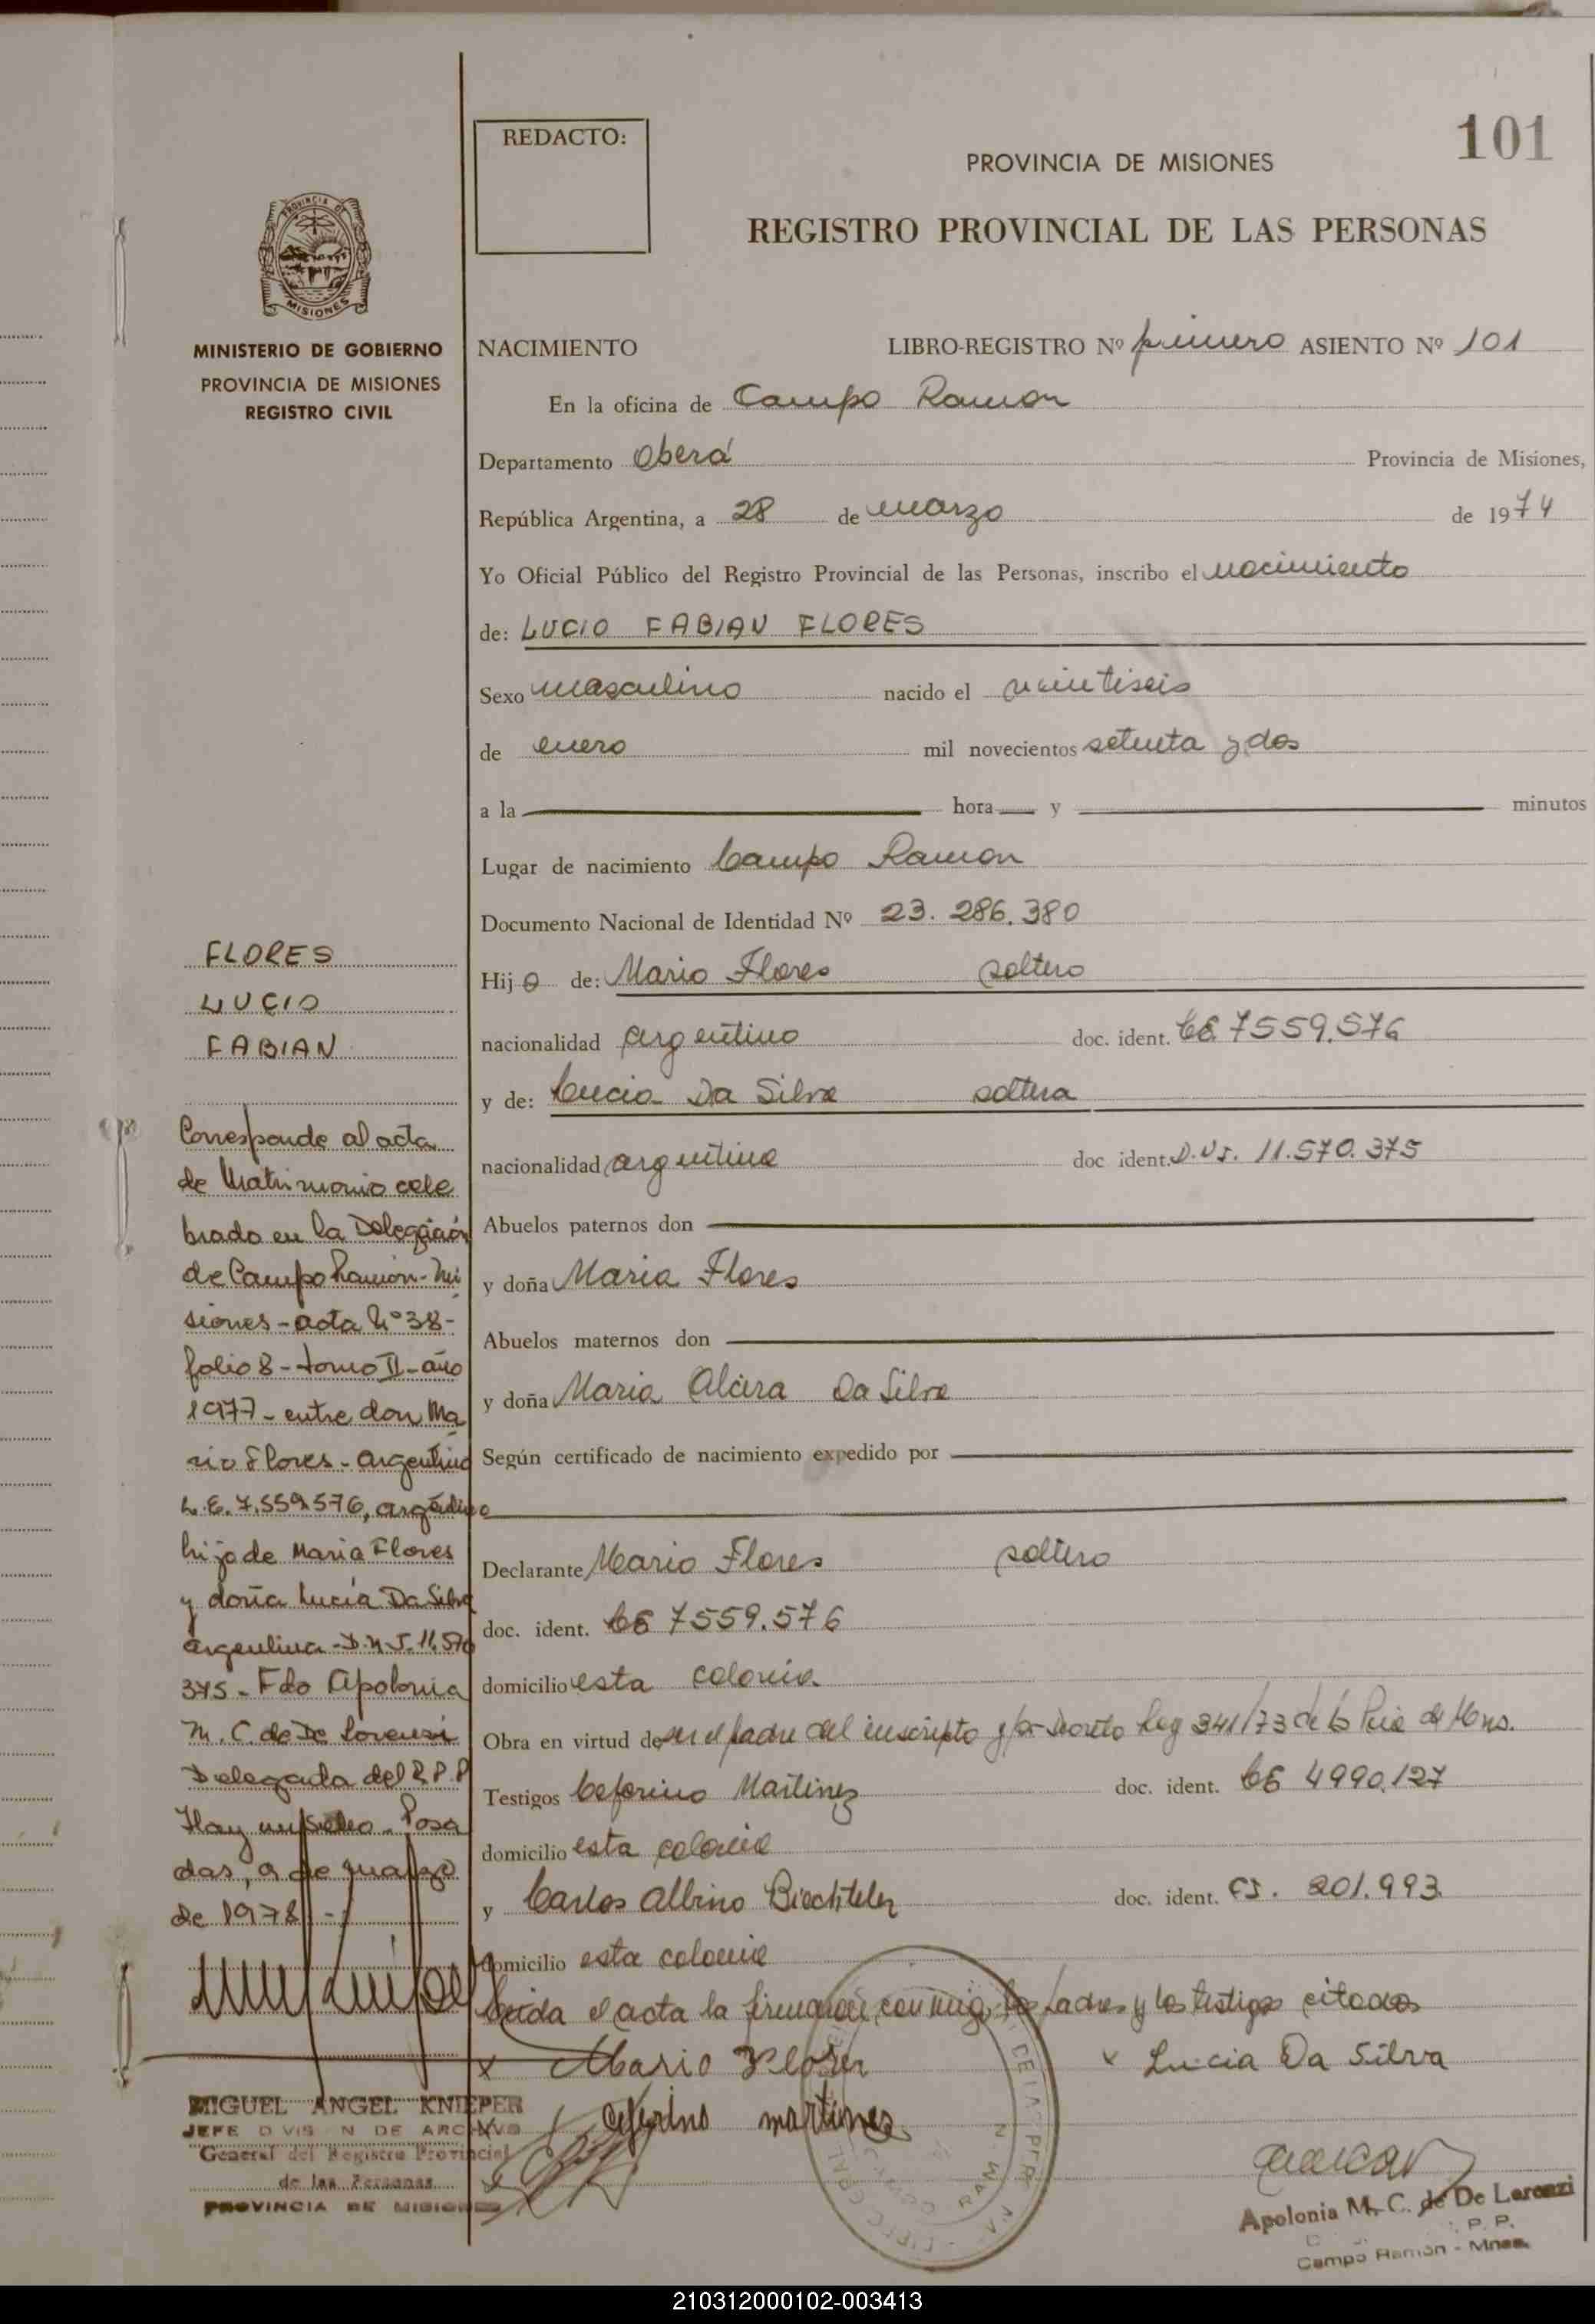 101
REDACTO:
PROVINCIA DE MISIONES
REGISTRO PROVINCIAL DE LAS PERSONAS
PROVINCIA DE
MISIONES
MINISTERIO DE GOBIERNO
PROVINCIA DE MISIONES
REGISTRO CIVIL
NACIMIENTO LIBRO-REGISTRO Nº primero ASIENTO Nº 101
En la oficina de Campo Ramon
Departamento Oberá Provincia de Misiones,
República Argentina, a 28 de marzo de 1974
Yo Oficial Público del Registro Provincial de las Personas, inscribo el nacimiento
de: LUCIO FABIAN FLORES
Sexo masculino nacido el veintiseis
de enero mil novecientos setenta y dos
a la hora y minutos
Lugar de nacimiento Campo Ramon
Documento Nacional de Identidad Nº 23.286.380
Hijo de: Mario Flores soltero
nacionalidad argentino doc. ident. LE 7559.576
y de: Lucia Da Silva soltera
nacionalidad argentina doc ident. D.N.I. 11.570.375
Abuelos paternos don
y doña Maria Flores
Abuelos maternos don
y doña Maria Alcira Da Silva
Según certificado de nacimiento expedido por
Declarante Mario Flores soltero
doc. ident. LE 7559.576
domicilio esta colonia
Obra en virtud de ser el padre del inscripto y por Decreto Ley 341/73 de la Pcia de Mnes.
Testigos Ceferino Martinez doc. ident. LE 4990.127
domicilio esta colonia
y Carlos Albino Biechteler doc. ident. CI. 201.993
domicilio esta colonia
Leida el acta la firmaron conmigo los padres y los testigos citados
x Mario Flores x Lucia Da Silva
x Ceferino martines
Apolonia M. C. de De Lorenzi
P. P.
Campo Ramón - Mnes.
FLORES
LUCIO
FABIAN
Corresponde al acta
de Matrimonio cele
brado en la Delegación
de Campo Ramón - Mi
siones - acta Nº 38 -
folio 8 - tomo II - año
1977 - entre don Ma
rio Flores - argentino
L.E. 7.559.576, argentino
hijo de Maria Flores
y doña Lucía Da Silva
argentina - D.N.I. 11.570
375 - Fdo Apolonia
M. C. de De Lorenzi
Delegada del R.P.P
Hay un sello - Posa
das, 9 de marzo
de 1978 -
MIGUEL ANGEL KNIEPER
JEFE DIVISION DE ARCHIVO
General del Registro Provincial
de las Personas
PROVINCIA DE MISIONES
210312000102-003413